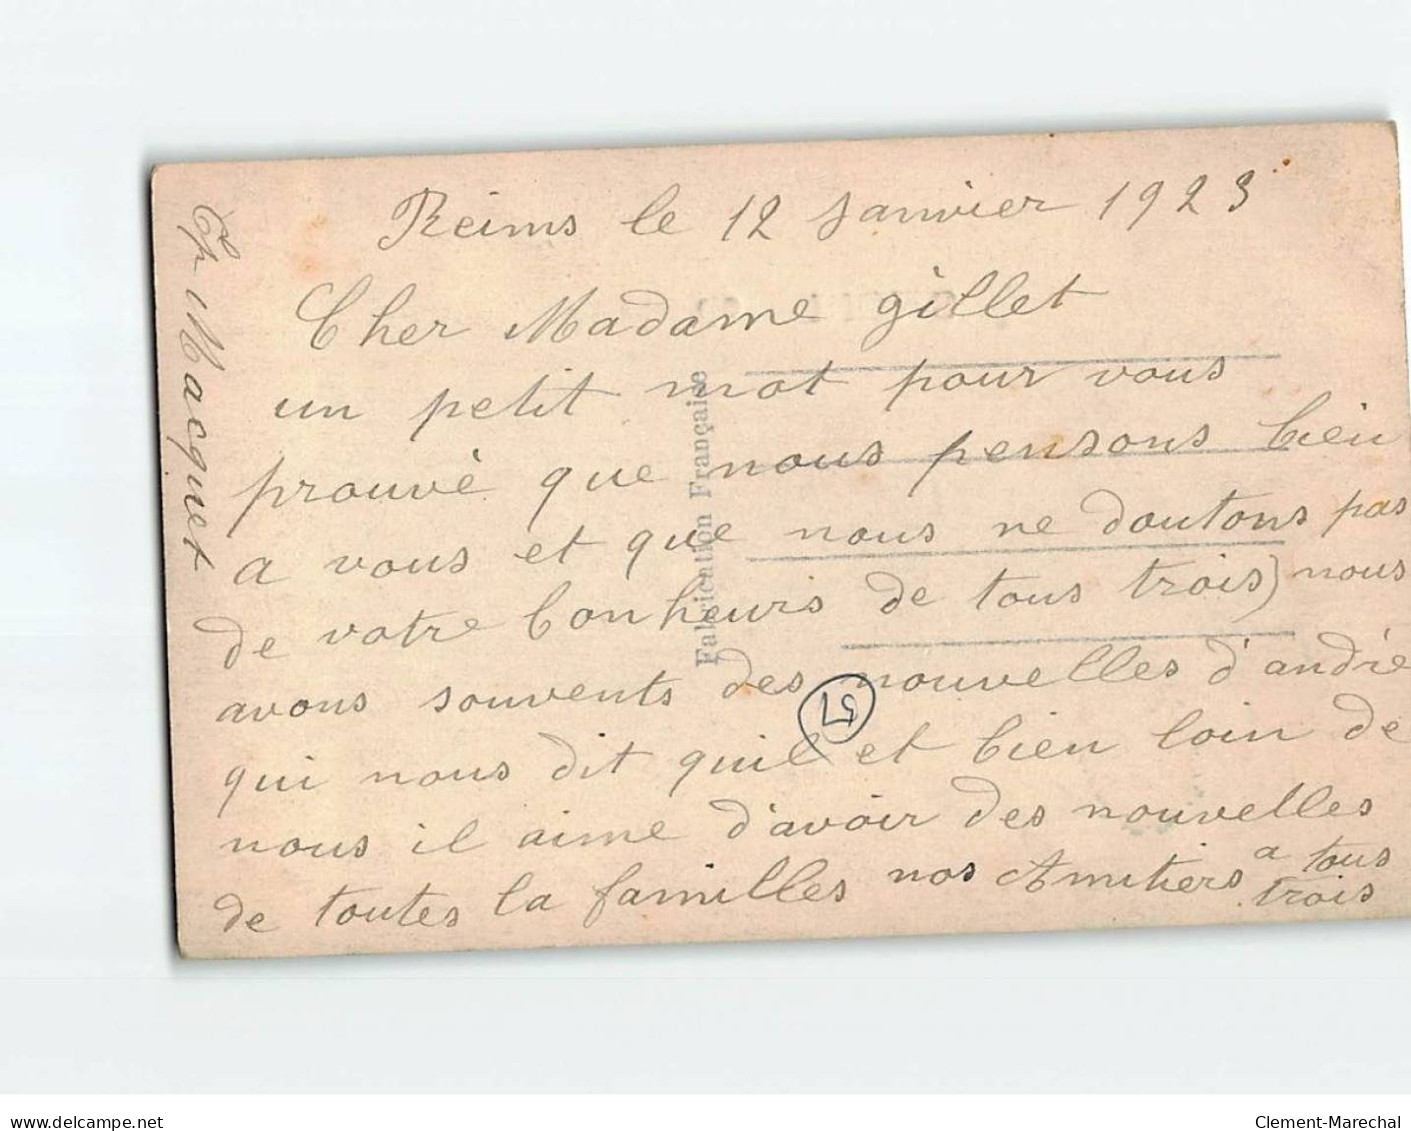 Reims le 12 Janvier 1923
Cher Madame gillet
un petit mot pour vous
prouvé que nous pensons bien
a vous et que nous ne doutons pas
de votre bonheurs de tous trois) nous
avons souvents des nouvelles d'andré
qui nous dit quil et bien loin de
nous il aime d'avoir des nouvelles
de toutes la familles nos Amitiers a tous
trois
Ch Macquet
Fabrication Française
57
www.delcampe.net
Clement-Marechal